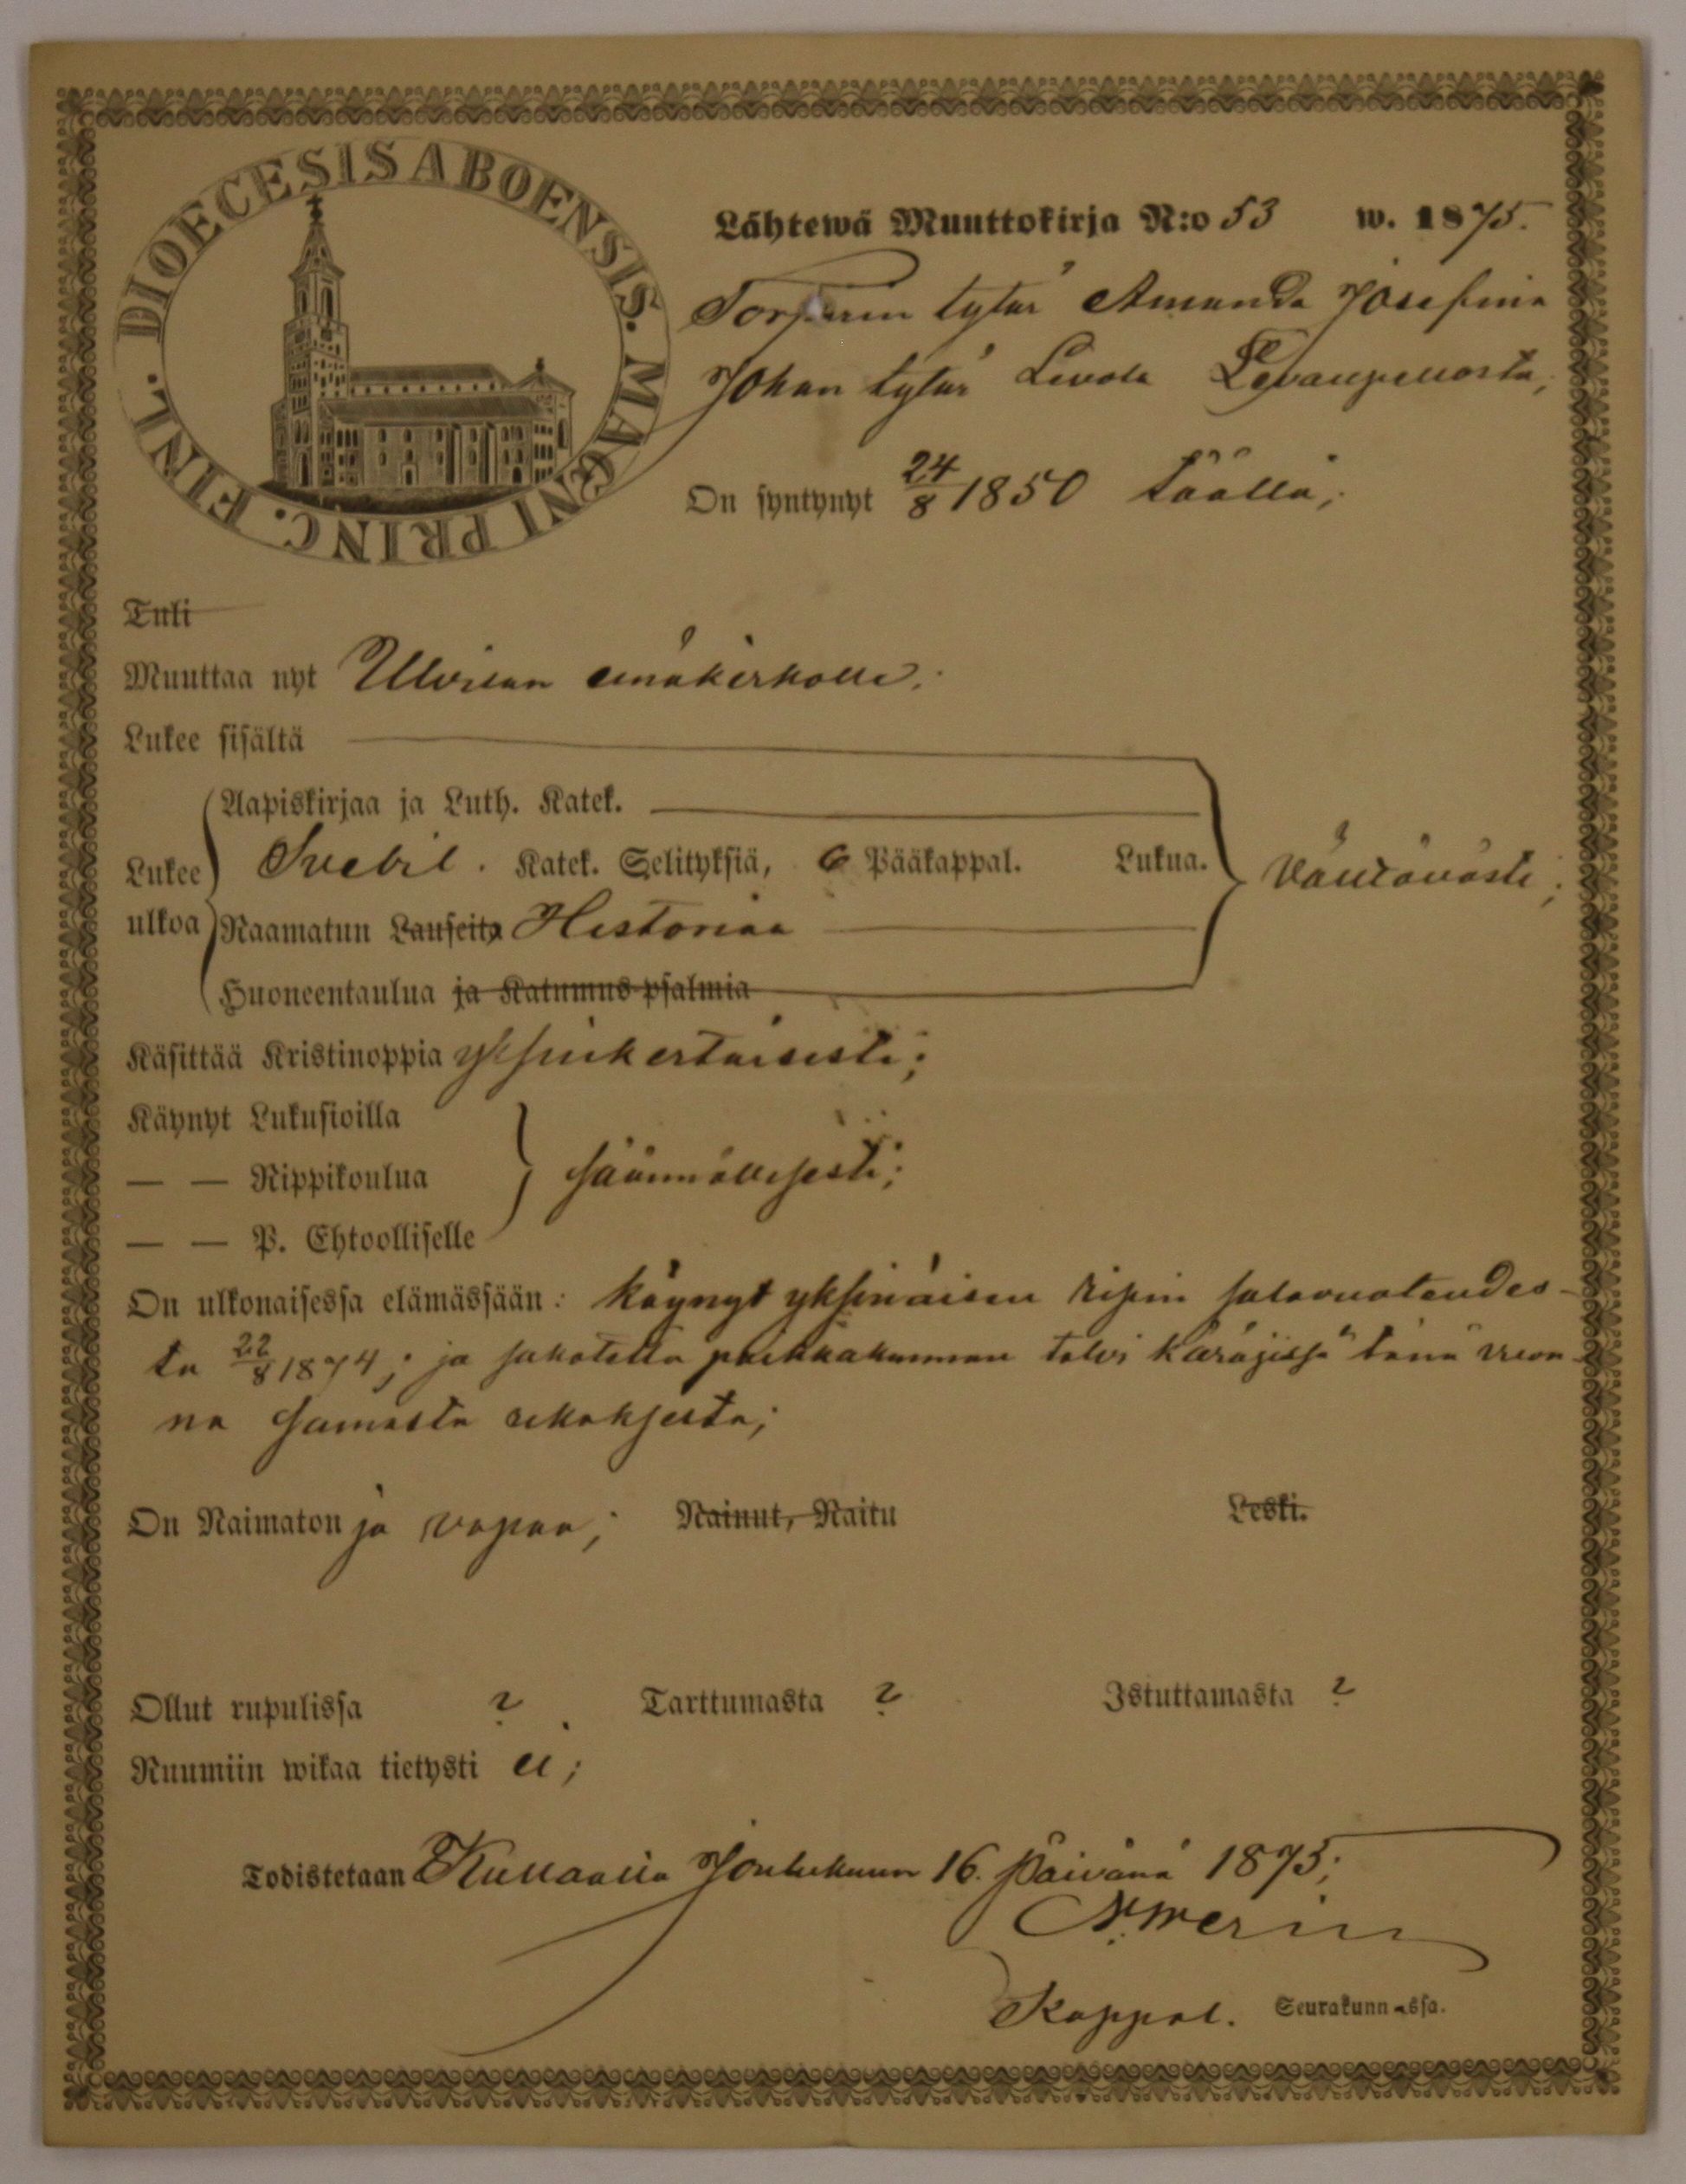 DIOECESIS ABOENSIS. MAGNI PRINC. FINL.
Lähtewä Muuttokirja N:o 53 w. 1875.
Torparin tytär Amanda Josefina
Johan tytär Levanpellosta,
On syntynyt 24/8 1850 täällä;
Tuli
Muuttaa nyt Ulvilan emäkirkolle;
Lukee sisältä
Aapiskirjaa ja Luth. Katek.
Lukee ulkoa Svebil. Katek. Selityksiä, 6 Pääkappal. Lukua. välttävästi;
Raamatun Lauseita Historiaa
Huoneentaulua ja Katumus-psalmia
Käsittää Kristinoppia yksinkertaisesti;
Käynyt Lukusioilla
— — Rippikoulua säännöllisesti;
— — P. Ehtoolliselle
On ulkonaisessa elämässään: käynyt yksinäisen ripin salavuoteudes-
ta 22/8 1874; ja sakotettu paikkakunnan talvi käräjissä tänä vuon-
na samasta rikoksesta;
On Naimaton ja vapaa; Nainut, Naitu Leski.
Ollut rupulissa ? Tarttumasta ? Istuttamasta ?
Ruumiin wikaa tietysti ei;
Todistetaan Kullaalla Joulukuun 16. päivänä 1875;
Kappal. Seurakunnassa.